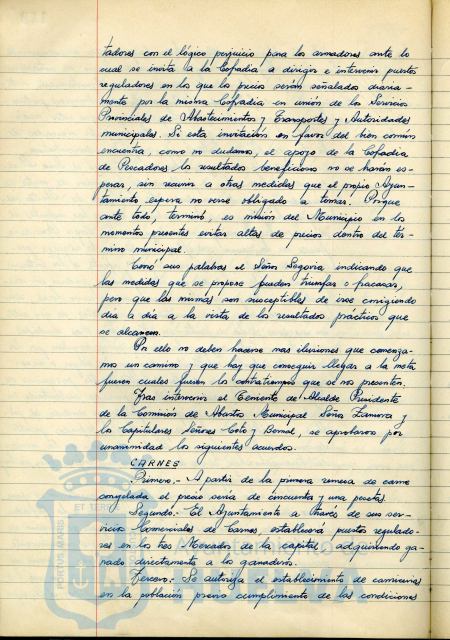 tadores con el lógico perjuicio para los armadores ante lo
cual se invita a la Cofradia a dirigir e intervenir puestos
reguladores en los que los precios serán señalados diaria-
mente por la misma Cofradia en unión de los Servicios
Provinciales de Abastecimientos y Transportes y Autoridades
municipales. Si esta invitación en favor del bien común
encuentra, como no dudamos, el apoyo de la Cofradia
de Pescadores los resultados beneficiosos no se harán es-
perar, sin recurrir a otras medidas que el propio Ayun-
tamiento espera no verse obligado a tomar. Porque
ante todo, terminó, es misión del Municipio en los
momentos presentes evitar altas de precios dentro del tér-
mino municipal.
Cerró sus palabras el Señor Segovia indicando que
las medidas que se propone pueden triunfar o fracasar,
pero que las mismas son susceptibles de irse corrigiendo
dia a dia a la vista de los resultados prácticos que
se alcancen.
Por ello no deben hacerse mas ilusiones que comenza-
mos un camino y que hay que conseguir llegar a la meta
fueren cuales fueren los contratiempos que se nos presenten.
Tras intervenir el Teniente de Alcalde Presidente
de la Comisión de Abastos Municipal Señor Zamora y
los Capitulares Señores Coto y Bernal, se aprobaron por
unanimidad los siguientes acuerdos.
CARNES
Primero.- A partir de la primera remesa de carne
congelada el precio seria de cincuenta y una pesetas.
Segundo.- El Ayuntamiento a través de sus ser-
vicios Comerciales de Carnes, establecerá puestos regulado-
res en los tres Mercados de la capital adquiriendo ga-
nado directamente a los ganaderos.
Tercero.- Se autoriza el establecimiento de carnicerias
en la población previo cumplimiento de las condiciones